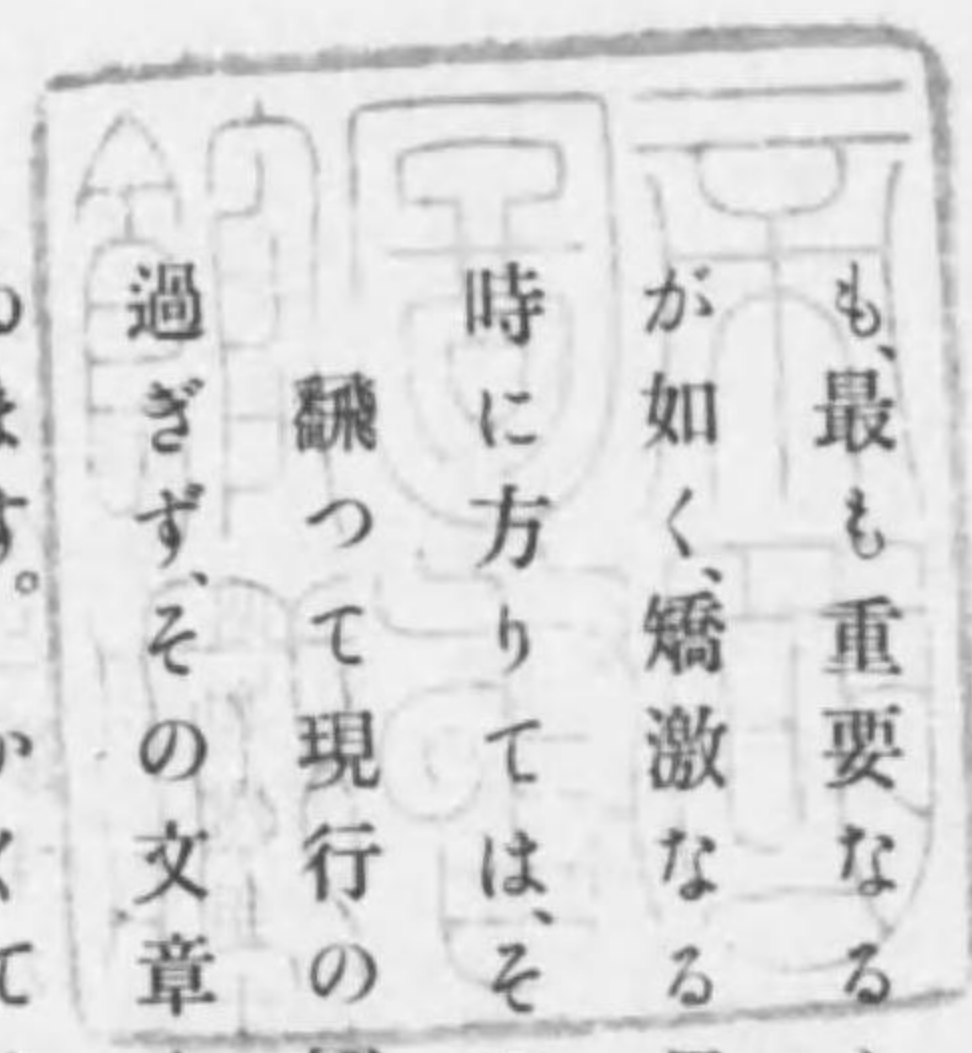 も、最も重要なる
が如く、矯激なる
時に方りては、そ
飜つて現行の
過ぎず、その文章
ります。かくて